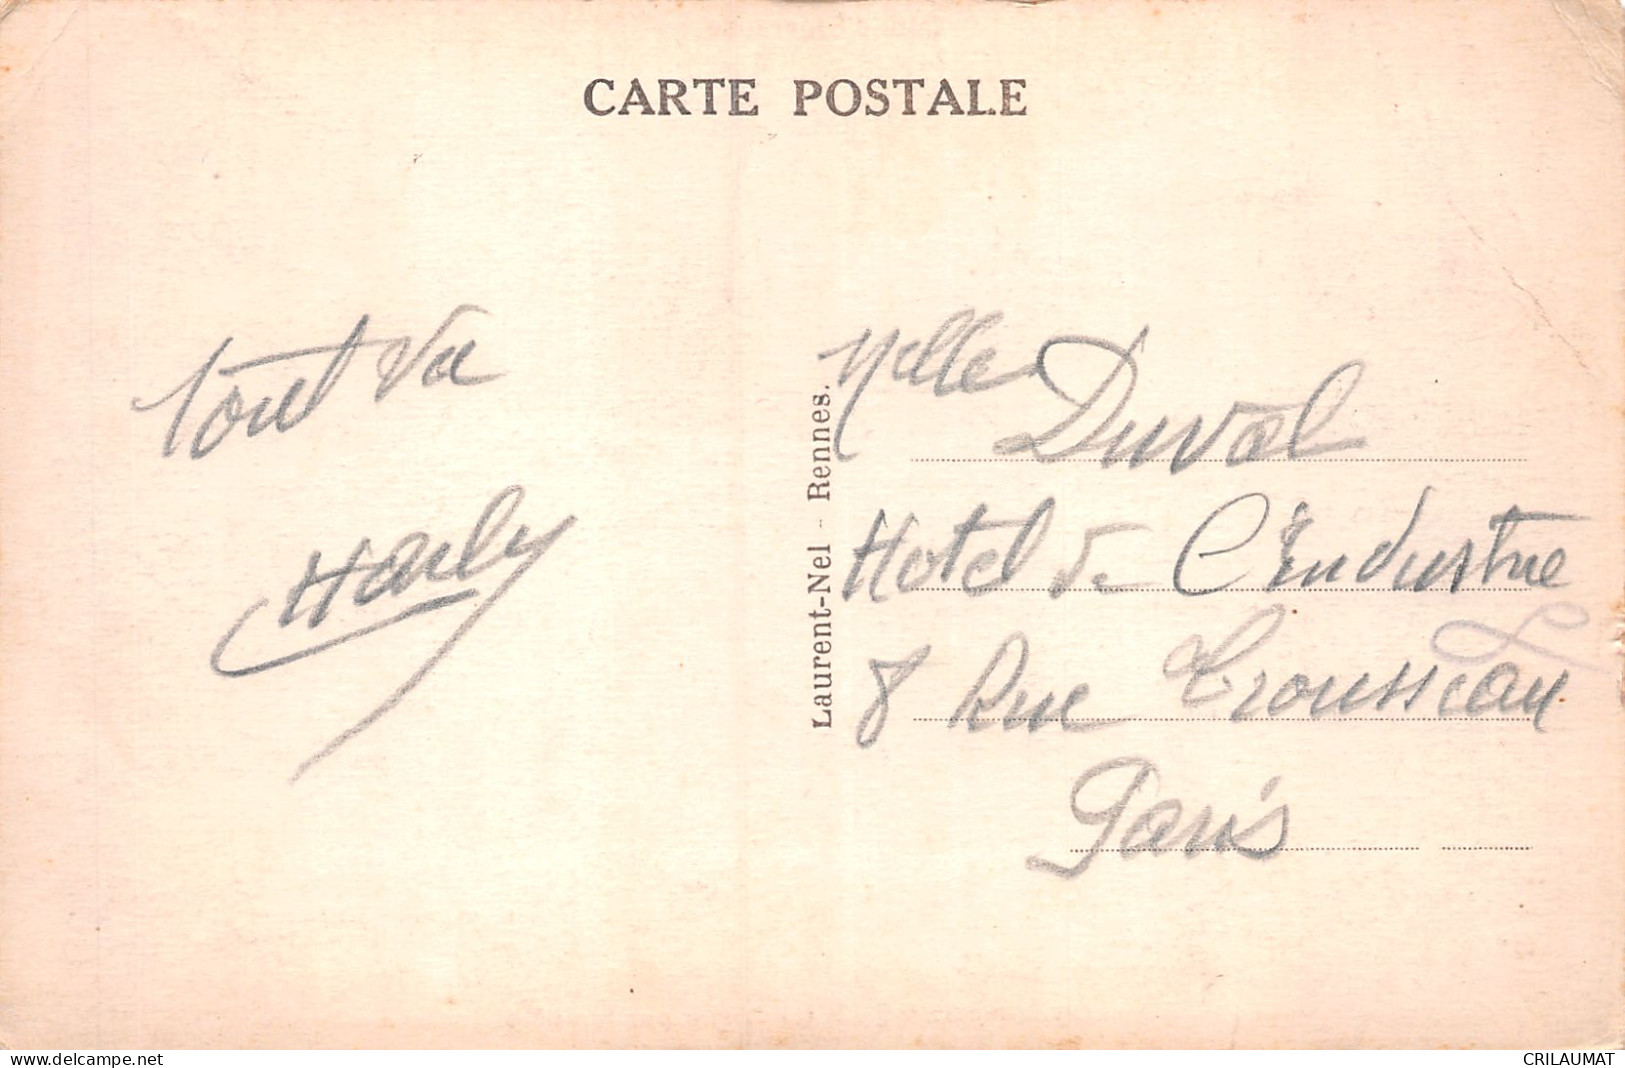 CARTE POSTALE
Tout va
Harly
Laurent-Nel - Rennes.
Mlle Duval
Hotel de L'Industrie
8 Rue Trousseau
Paris
www.delcampe.net
CRILAUMAT